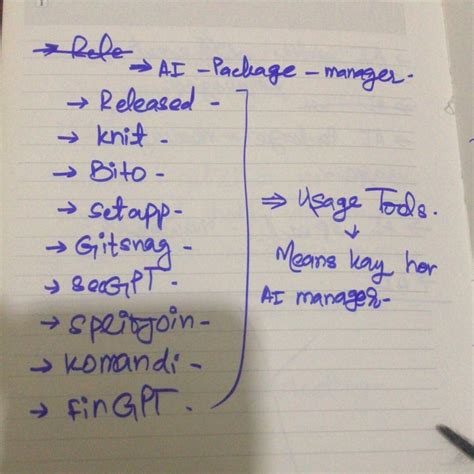 → Rele
→ AI - Package - manager.
→ Released -
→ knit -
→ Bito -
→ setapp -
→ Gitsnag -
→ secGPT -
→ spritjoin -
→ komandi -
→ finGPT.
⇒ Usage Tools.
↓
Means kay her
AI manager -